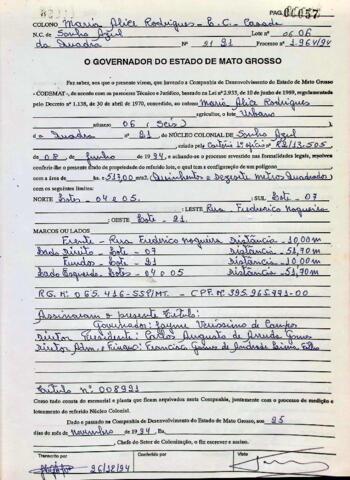 00057
COLONO Maria Alice Rodrigues - E.C. - Casada
N.C. de Sonho Azul Lote nº 06
da Quadra nº 21 Processo nº 1.964/94
O GOVERNADOR DO ESTADO DE MATO GROSSO
Faz saber, aos que o presente virem, que havendo a Companhia de Desenvolvimento do Estado de Mato Grosso
- CODEMAT -, de acordo com os pareceres Técnico e Jurídico, baseada na Lei nº 2.935, de 10 de junho de 1969, regulamentada
pelo Decreto nº 1.138, de 30 de abril de 1970, concedido, ao colono Maria Alice Rodrigues
agricultor, o lote Urbano
número 06 (Seis)
Quadra nº 21, do NÚCLEO COLONIAL DE Sonho Azul
, criado pela R2/13.505
de 08 de Junho de 1994, e achando-se o processo revestido nas formalidades legais, resolveu
conferir-lhe o presente título de propriedade do referido lote, o qual tem a configuração de um polígono
com a área de ha. 517,00 m2. (Quinhentos e Dezesete Metros Quadrados)
com os seguintes limites:
NORTE Lotes - 04 e 05. ; SUL Lote - 07
; LESTE Rua Frederico Nogueira
; OESTE Lote - 21.
MARCOS OU LADOS
Frente - Rua Frederico Nogueira Distância - 10,00 m
Lado Direito - Lote - 07 Distância - 51,70 m
Fundos - Lote - 21 Distância - 10,00 m
Lado Esquerdo - Lotes - 04 e 05 Distância - 51,70 m
R.G. Nº 065.416-SSP/MT. - CPF. Nº 395.965.771-00
Assinaram o presente Título:
Governador: Jayme Veríssimo de Campos
Diretor Presidente: Carlos Augusto de Arruda Gomes
Diretor Adm. e Financ.: Francisco Gomes de Andrade Lima Filho
Título nº 008991
Como tudo consta do memorial e planta que ficam arquivados nesta Companhia, juntamente com o processo de medição e
loteamento do referido Núcleo Colonial.
Dado e passado na Companhia de Desenvolvimento do Estado de Mato Grosso, aos 25
dias do mês de novembro de 1994.
, Chefe do Setor de Colonização, o fiz escrever e assino.
Transcrito por
Conferido por
Visto
26/12/94